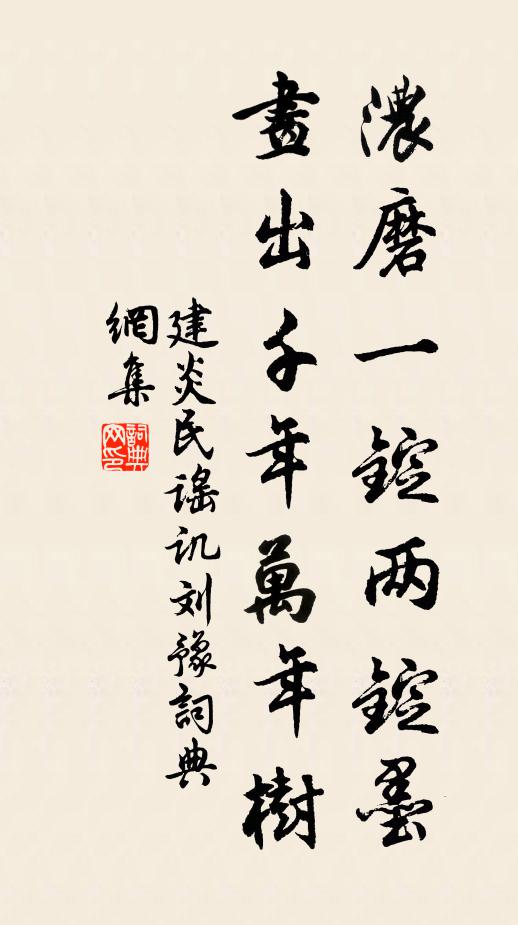 濃磨一錠两錠墨
畫出千年萬年樹
建炎民谣讥刘豫詞典
網集
詞典
网印